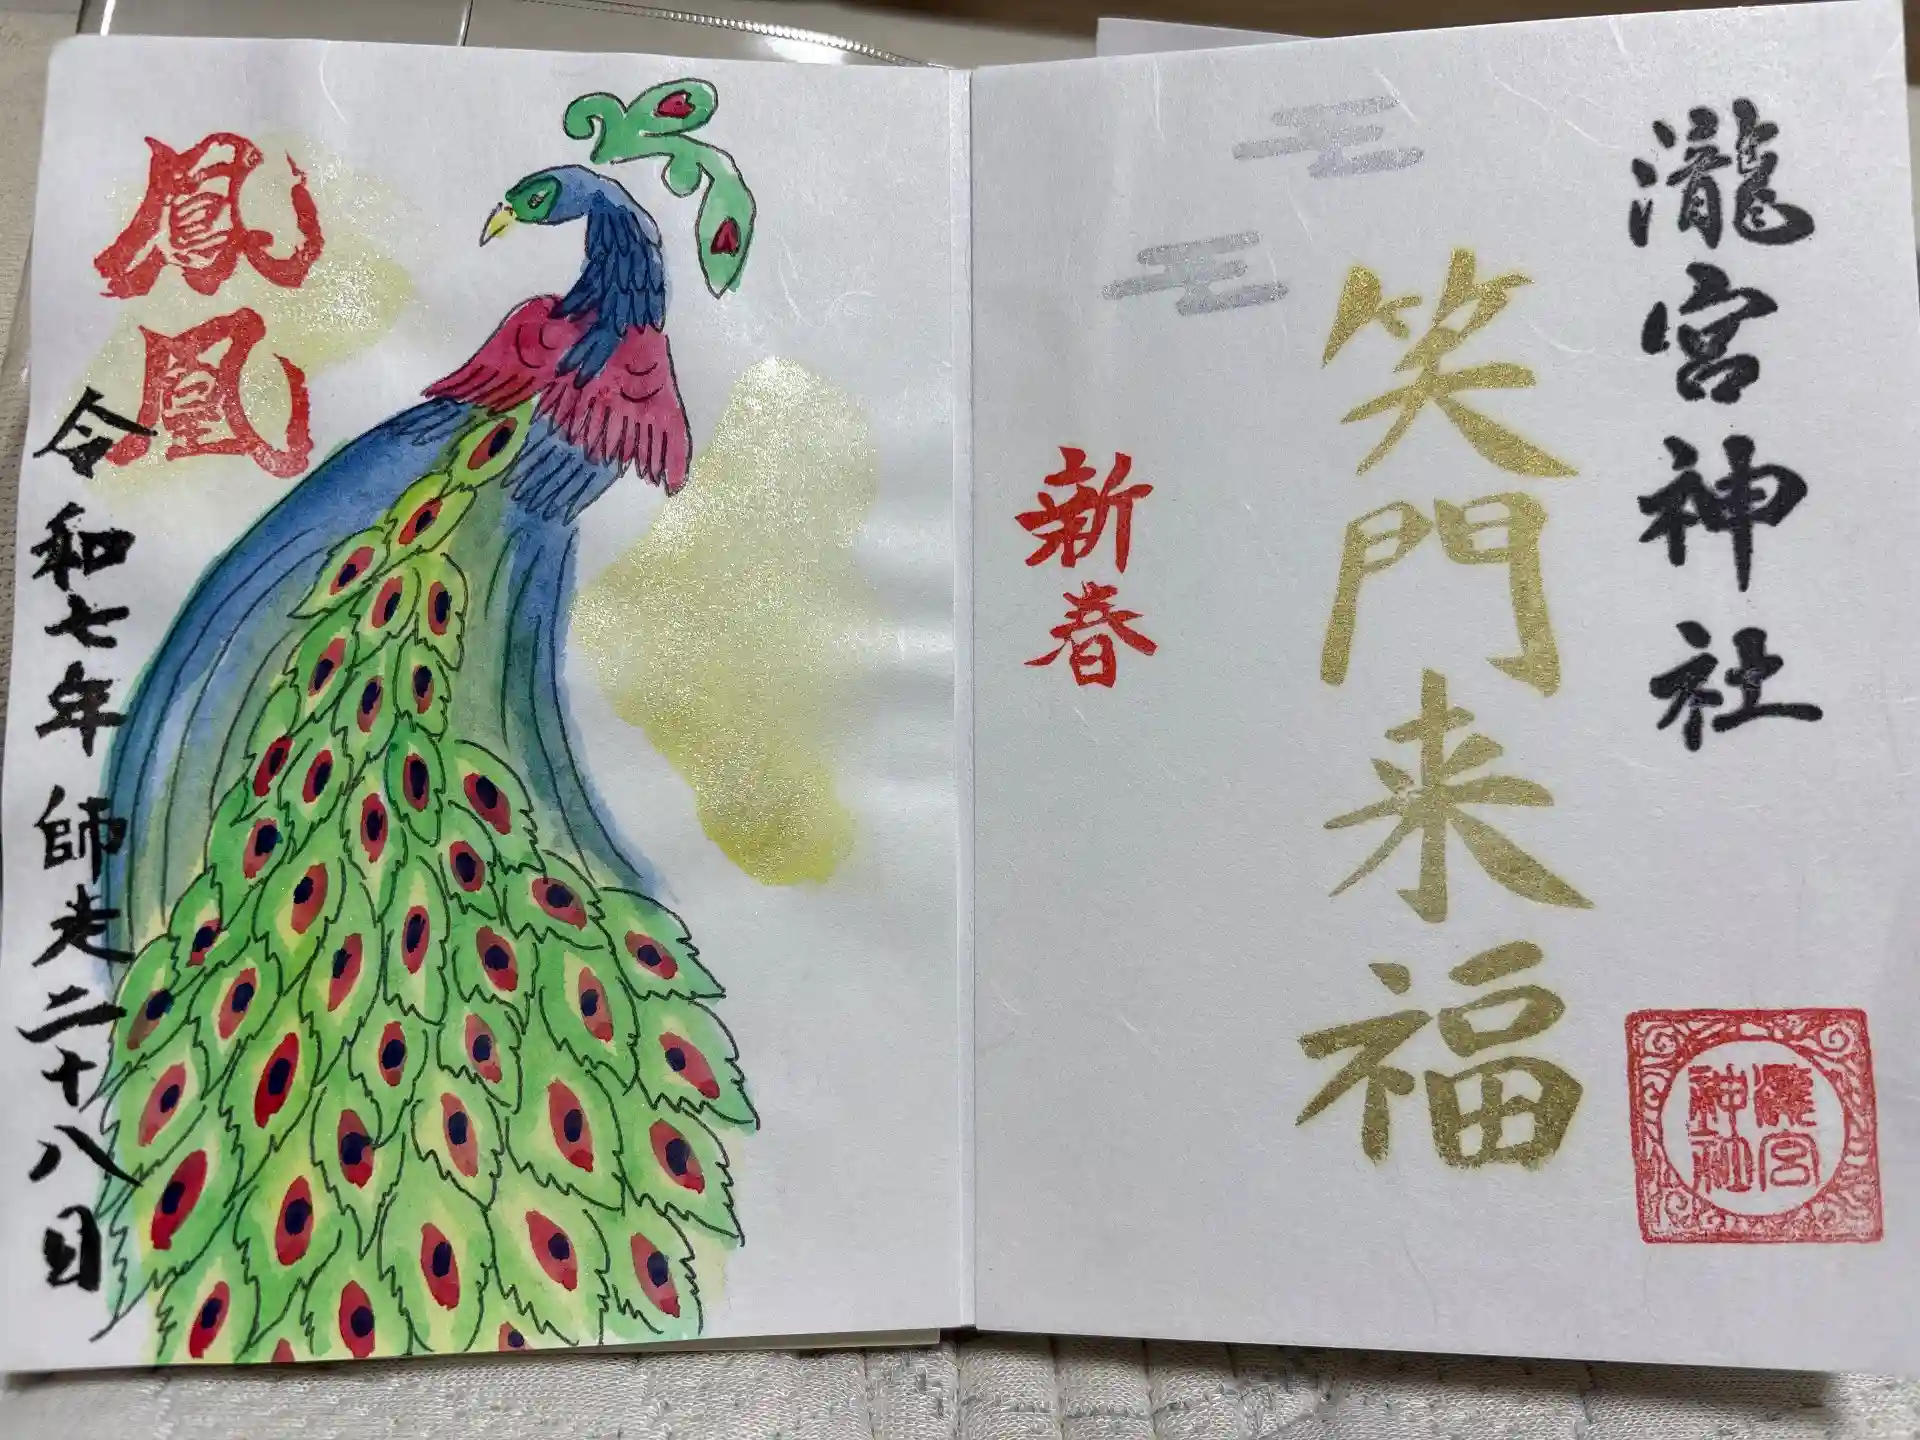 瀧宮神社
笑門来福
瀧宮
神社
新春
鳳凰
令和七年師走二十八日